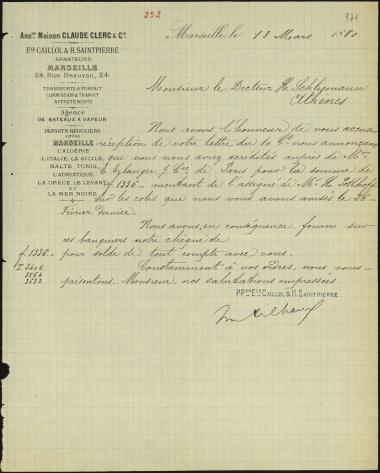 252
171
Anc.ne Maison CLAUDE CLERC & C.ie
Ed. CAILLOL & H. SAINTPIERRE
ARMATEURS
MARSEILLE
24, Rue Beauvau, 24
TRANSPORTS A FORFAIT
COMMISSION & TRANSIT
AFFRÈTEMENTS
Agence
DE BATEAUX A VAPEUR
DÉPARTS RÉGULIERS
ENTRE
MARSEILLE
L'ALGÉRIE
L'ITALIE, LA SICILE,
MALTE, TUNIS,
L'ADRIATIQUE,
LA GRÈCE, LE LEVANT
ET
LA MER NOIRE
Marseille, le 18 Mars 1880.
Monsieur le Docteur H. Schliemann
Athènes
Nous avons l'honneur de vous accuser
réception de votre lettre du 10 Ct. nous annonçant
que vous nous aviez accrédités auprès de Mrs.
E. Erlanger & Cie de Paris pour la somme de
f. 1336.- montant de l'assigné de Mr. H.
sur les colis que nous vous avons avisés le 26
Février dernier.
Nous avons, en conséquence, fourni sur
ces banquiers notre chèque de
f. 1336.- pour solde de tout compte avec vous.
Constamment à vos ordres, nous vous
présentons, Monsieur, nos salutations empressées
3652
PPon Ed. CAILLOL & H. SAINTPIERRE